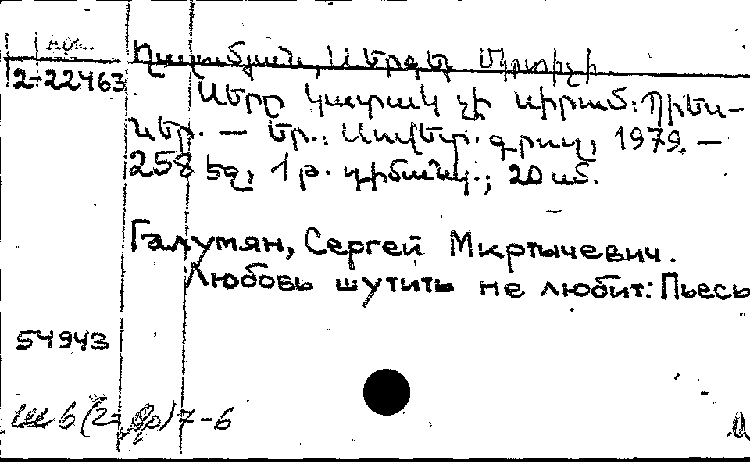 2-22463
Սերը կատակ չի սիրում: Պիես-
ներ. — Եր.: Սովետ. գրող, 1979. —
258 էջ, 1 թ. դիմանկ.; 20 սմ.
Галумян, Сергей Мкртычевич.
Любовь шутить не любит: Пьесы
54943